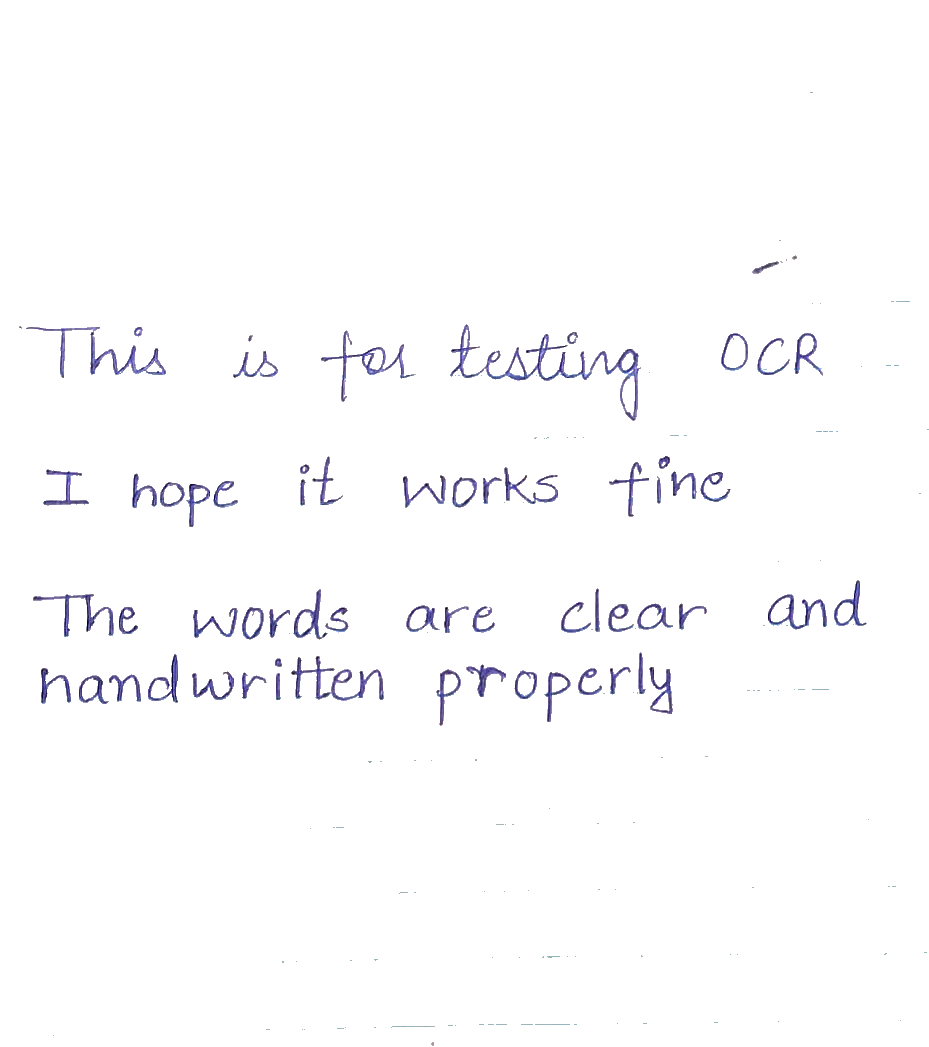 This is for testing OCR
I hope it works fine
The words are clear and
handwritten properly